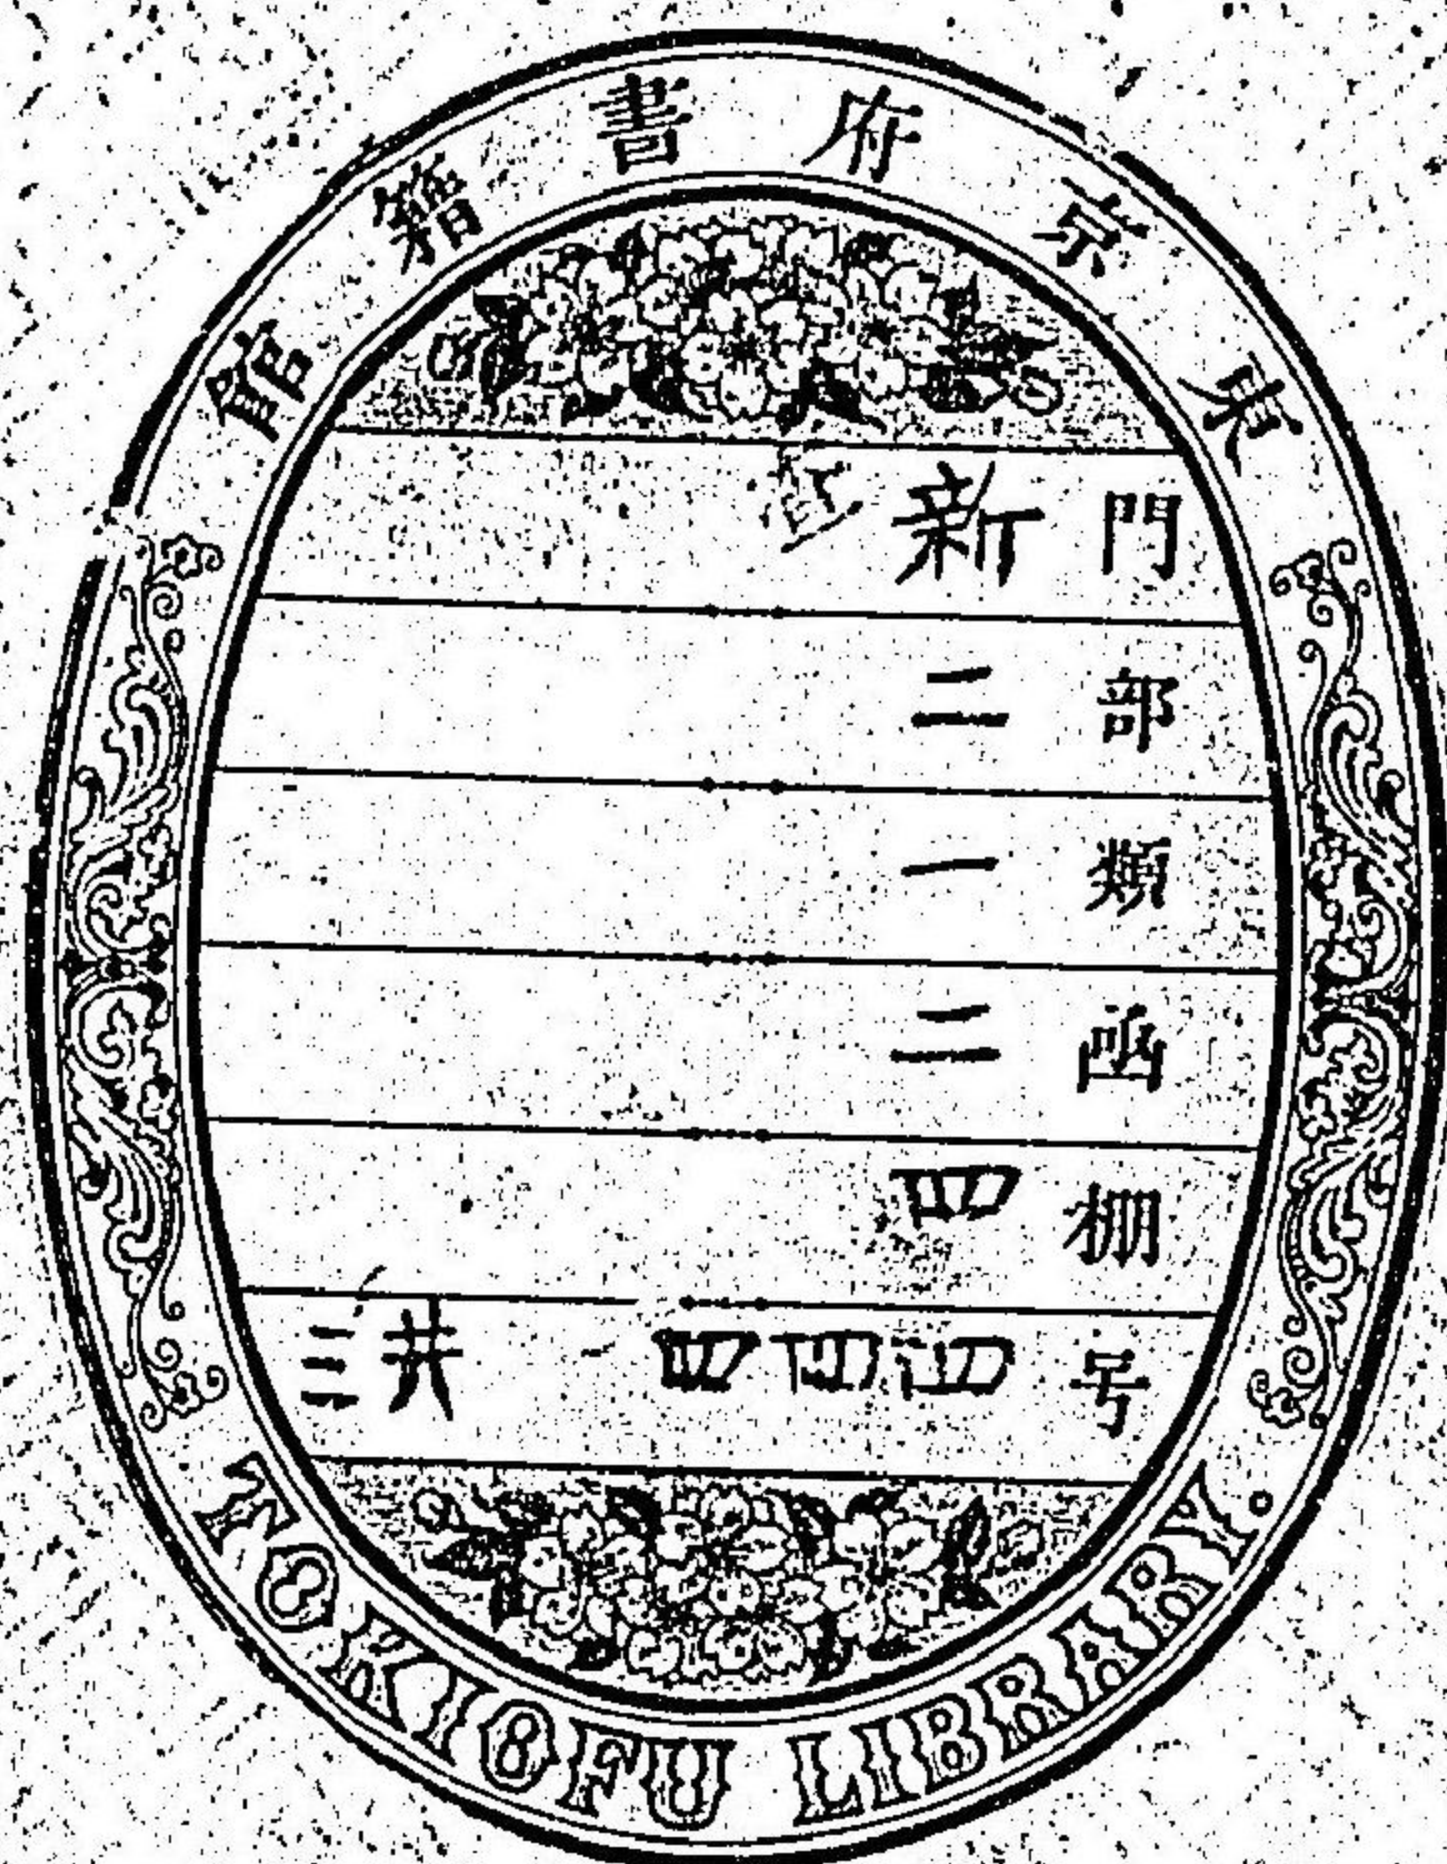 東京府書籍館
門 新
部 二
類 一
函 二
棚 四
号 四四四 共三
TOKIOFU LIBRARY.